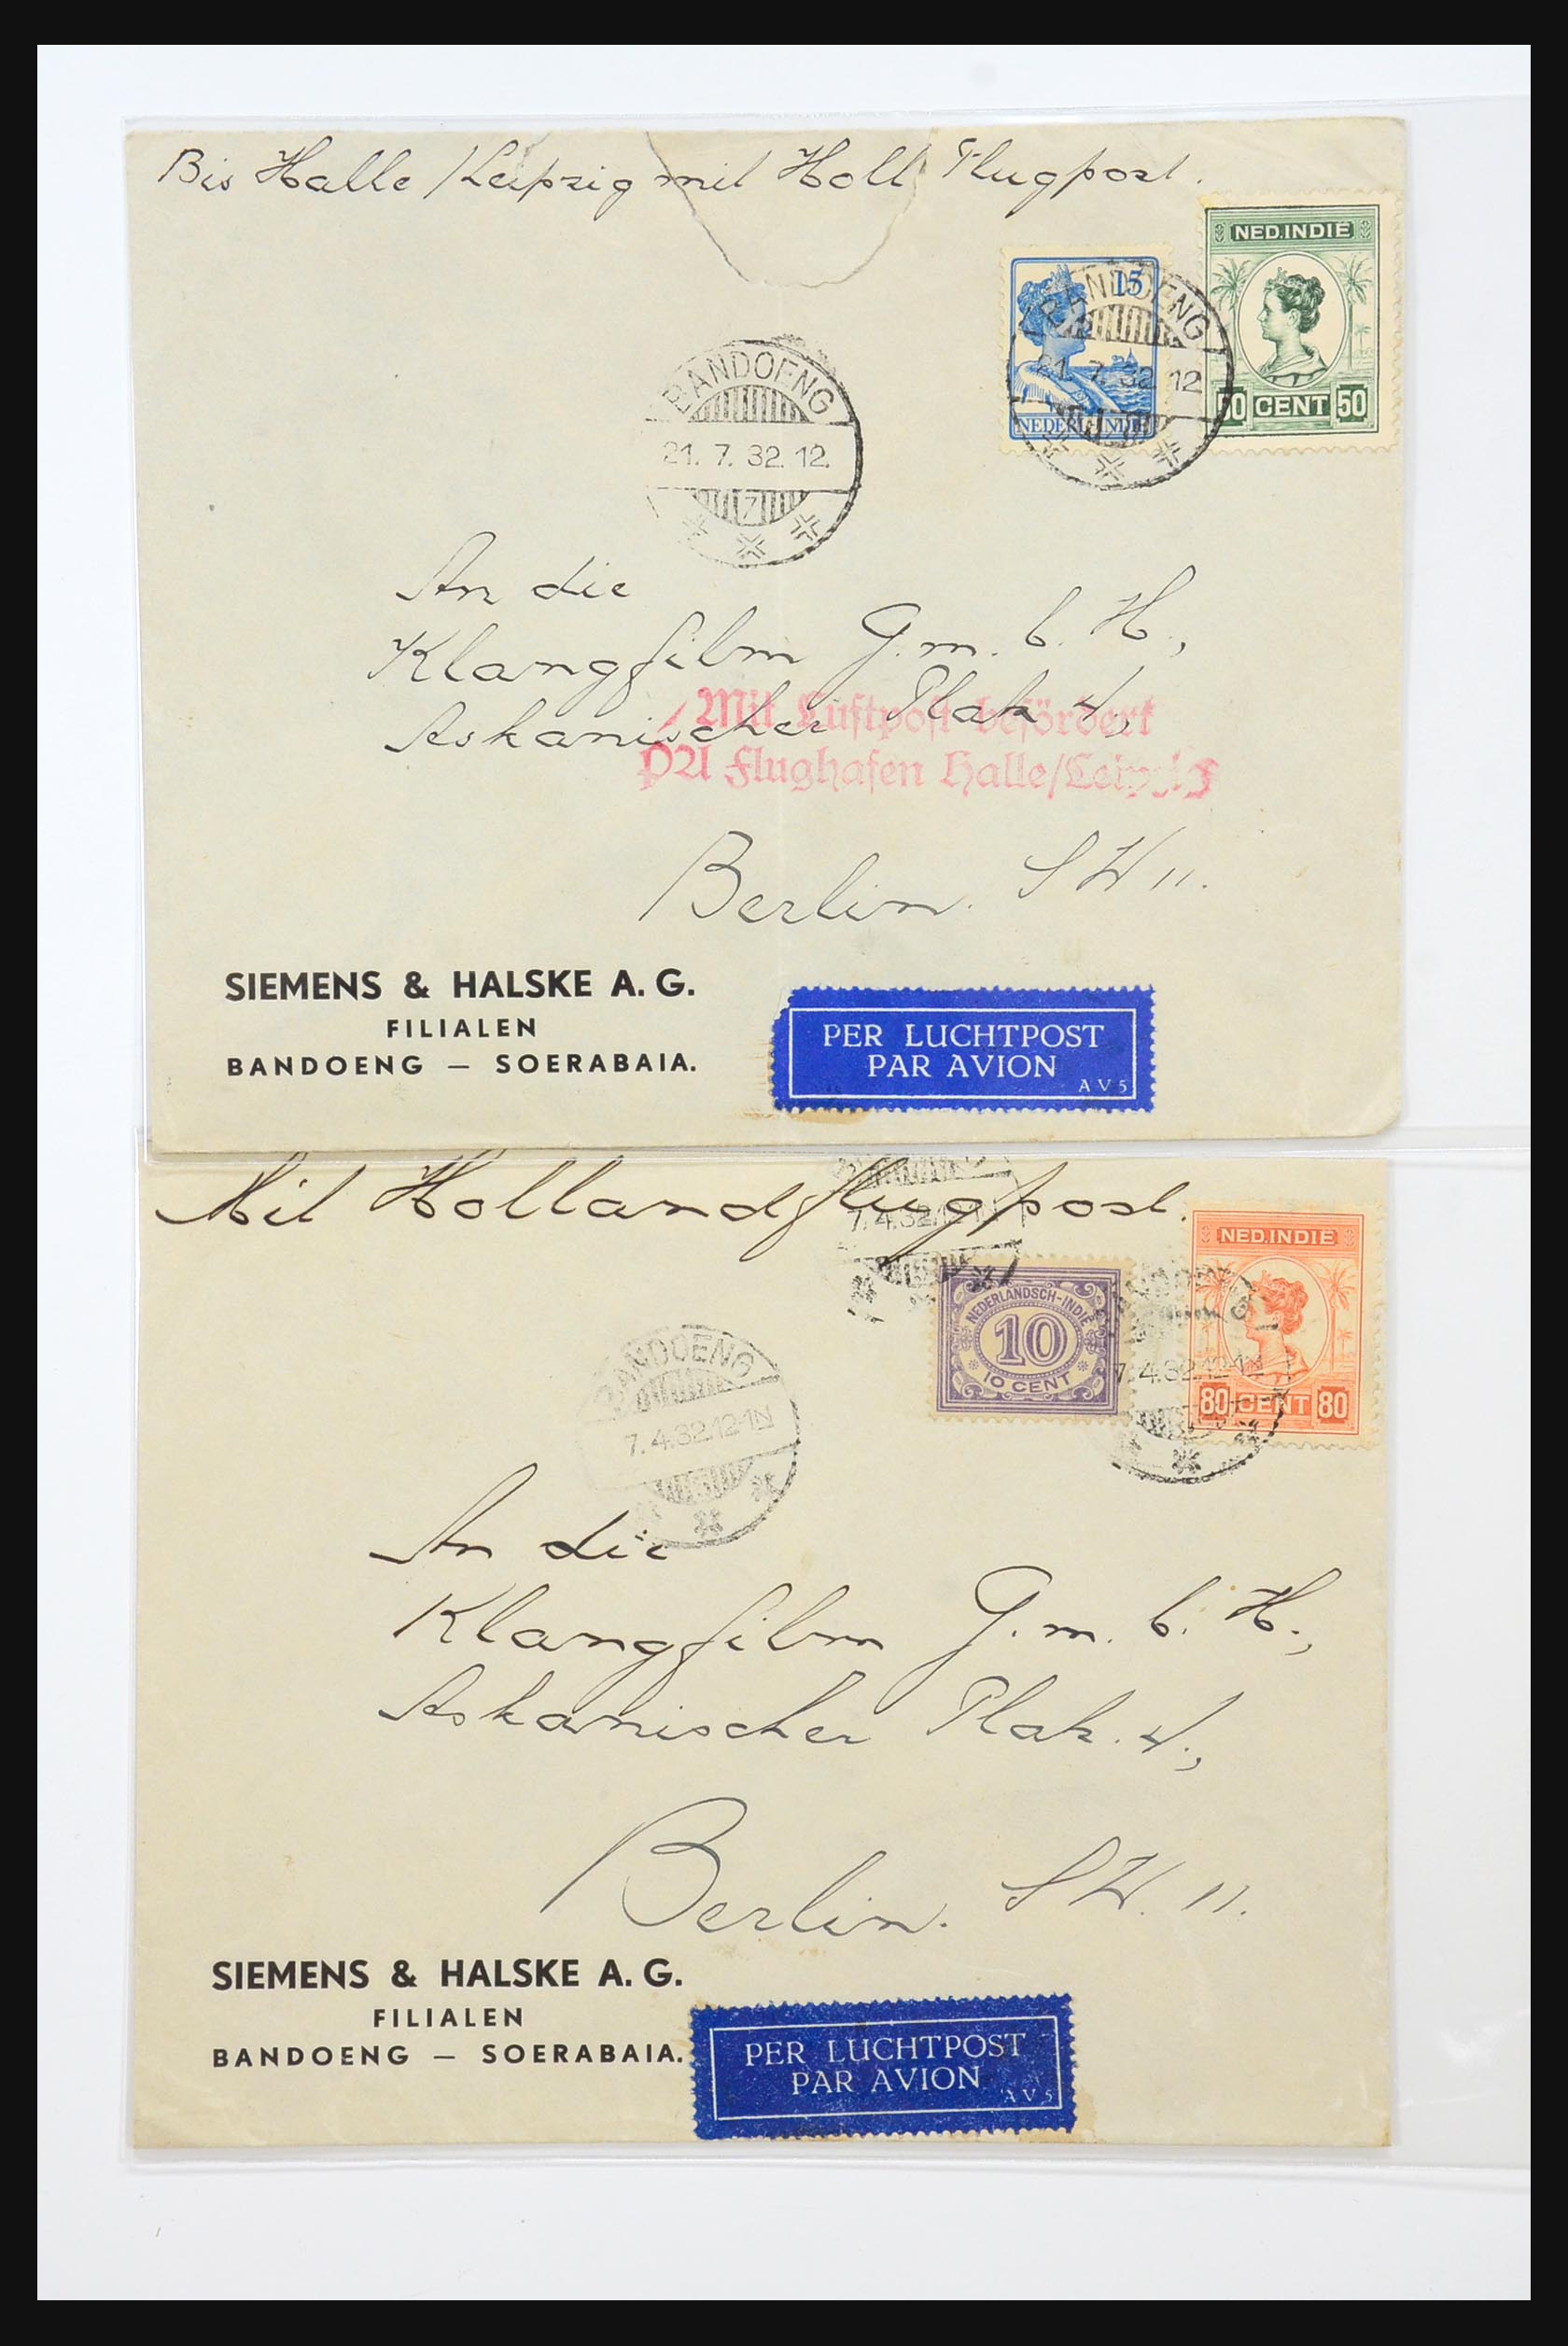 Bis Halle/Leipzig mit Holl. Flugpost.
NED.INDIË
50 CENT 50
15
NEDERL-INDIË
BANDOENG
21. 7. 32. 12
BANDOENG
21. 7. 32. 12.
7
An die
Klangfilm G.m.b.H.,
Askanischer Platz 4,
Mit Luftpost befördert
PA Flughafen Halle/Leipzig
Berlin. SW 11.
SIEMENS & HALSKE A.G.
FILIALEN
BANDOENG — SOERABAIA.
PER LUCHTPOST
PAR AVION
AV5
Mit Hollandflugpost.
7.4.32
NED.INDIË
80 CENT 80
NEDERLANDSCH-INDIË
10
10 CENT
7.4.32.12-1N
BANDOENG
7.4.32.12-1N
An die
Klangfilm G.m.b.H.,
Askanischer Platz. 4.,
Berlin. SW. 11.
SIEMENS & HALSKE A.G.
FILIALEN
BANDOENG — SOERABAIA.
PER LUCHTPOST
PAR AVION
AV5